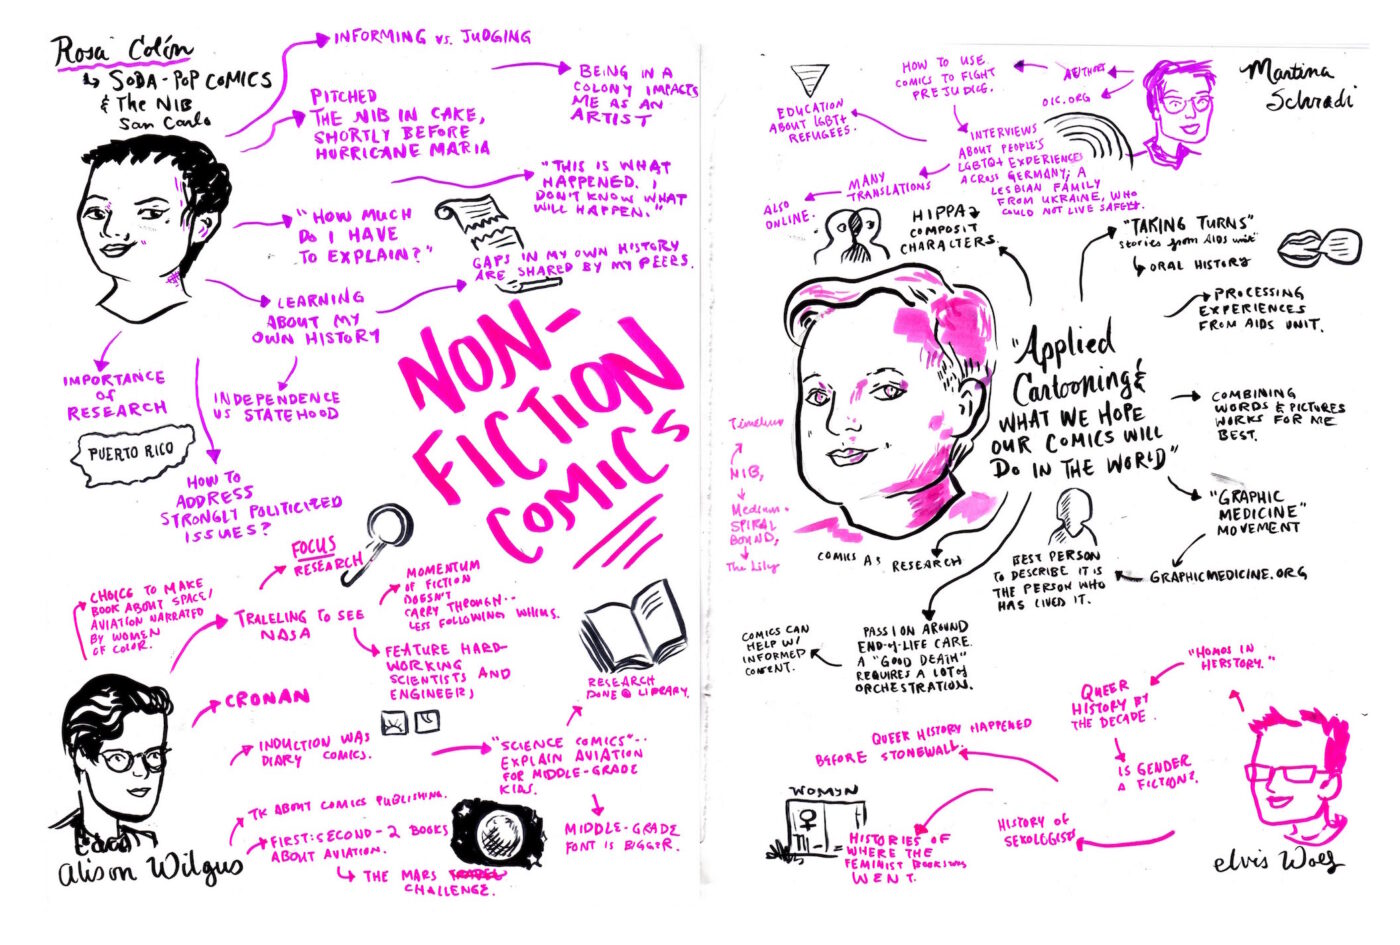 Rosa Colón
SODA-POP COMICS
& The NIB
San Carlo
INFORMING vs. JUDGING
PITCHED
THE NIB IN CAKE,
SHORTLY BEFORE
HURRICANE MARIA
BEING IN A
COLONY IMPACTS
ME AS AN
ARTIST
"THIS IS WHAT
HAPPENED. I
DON'T KNOW WHAT
WILL HAPPEN."
"HOW MUCH
DO I HAVE
TO EXPLAIN?"
GAPS IN MY OWN HISTORY
ARE SHARED BY MY PEERS.
LEARNING
ABOUT MY
OWN HISTORY
INDEPENDENCE
VS STATEHOOD
IMPORTANCE
OF
RESEARCH
PUERTO RICO
HOW TO
ADDRESS
STRONGLY POLITICIZED
ISSUES?
NON-
FICTION
COMICS
FOCUS
RESEARCH
CHOICE TO MAKE
BOOK ABOUT SPACE/
AVIATION NARRATED
BY WOMEN
OF COLOR.
TRALELING TO SEE
NASA
MOMENTUM
OF FICTION
DOESN'T
CARRY THROUGH--
LESS FOLLOWING WHIMS.
FEATURE HARD-
WORKING
SCIENTISTS AND
ENGINEERS
RESEARCH
DONE @ LIBRARY.
CRONAN
INDUCTION WAS
DIARY COMICS.
"SCIENCE COMICS"--
EXPLAIN AVIATION
FOR MIDDLE-GRADE
KIDS.
MIDDLE-GRADE
FONT IS BIGGER.
TK ABOUT COMICS PUBLISHING.
FIRST:SECOND-2 BOOKS
ABOUT AVIATION.
THE MARS
CHALLENGE.
Alison Wilgus
Martina
Schradi
AUTHOR
OIC.ORG
HOW TO USE
COMICS TO FIGHT
PREJUDICE.
EDUCATION
ABOUT LGBT+
REFUGEES.
INTERVIEWS
ABOUT PEOPLE'S
LGBTQ+ EXPERIENCES
ACROSS GERMANY; A
LESBIAN FAMILY
FROM UKRAINE, WHO
COULD NOT LIVE SAFELY.
MANY
TRANSLATIONS
ALSO
ONLINE.
HIPPA→
COMPOSIT
CHARACTERS
"TAKING TURNS"
Stories from AIDS unit"
ORAL HISTORY
PROCESSING
EXPERIENCES
FROM AIDS UNIT.
"Applied
Cartooning &
WHAT WE HOPE
OUR COMICS WILL
DO IN THE WORLD"
COMBINING
WORDS & PICTURES
WORKS FOR ME
BEST.
"GRAPHIC
MEDICINE"
MOVEMENT
GRAPHICMEDICINE.ORG
BEST PERSON
TO DESCRIBE IT IS
THE PERSON WHO
HAS LIVED IT.
Timelines
NIB,
Medium.
SPIRAL
BOUND,
The Lily
COMICS AS RESEARCH
PASSION AROUND
END-OF-LIFE CARE.
A "GOOD DEATH"
REQUIRES A LOT OF
ORCHESTRATION.
COMICS CAN
HELP W/
INFORMED
CONSENT.
"HOMOS IN
HERSTORY."
QUEER
HISTORY BY
THE DECADE.
IS GENDER
A FICTION?
QUEER HISTORY HAPPENED
BEFORE STONEWALL.
HISTORY OF
SEXOLOGISTS
WOMYN
HISTORIES OF
WHERE THE
FEMINIST BOOKSTORES
WENT.
elvis Wolf